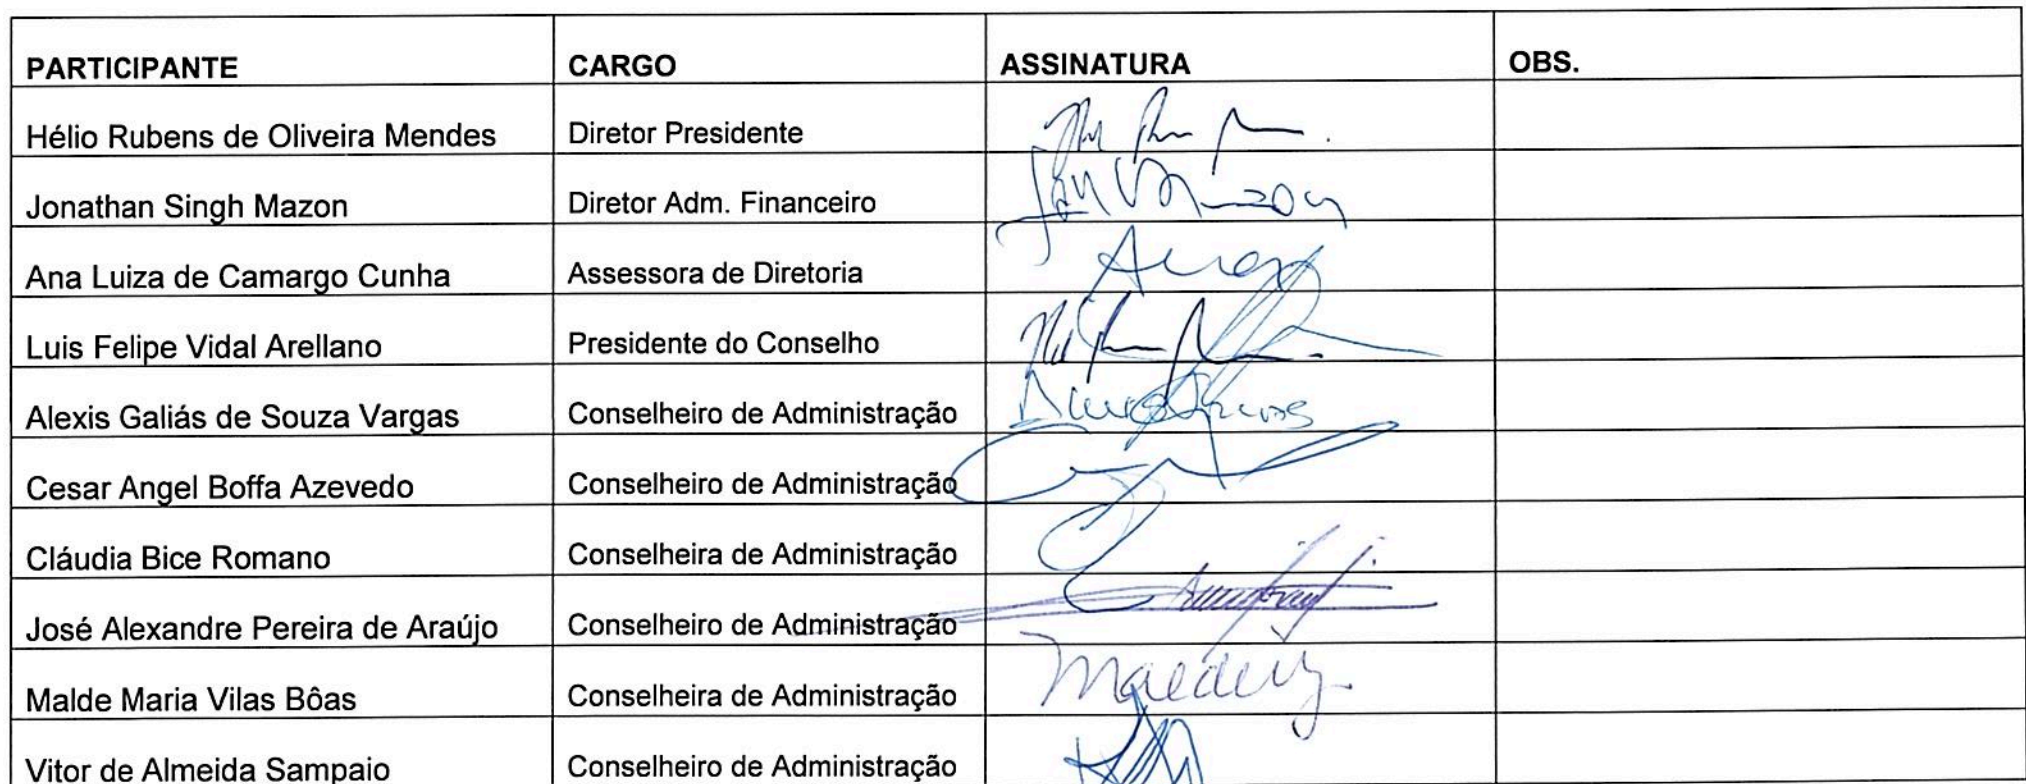 PARTICIPANTE CARGO ASSINATURA OBS.
Hélio Rubens de Oliveira Mendes Diretor Presidente
Jonathan Singh Mazon Diretor Adm. Financeiro
Ana Luiza de Camargo Cunha Assessora de Diretoria
Luis Felipe Vidal Arellano Presidente do Conselho
Alexis Galiás de Souza Vargas Conselheiro de Administração
Cesar Angel Boffa Azevedo Conselheiro de Administração
Cláudia Bice Romano Conselheira de Administração
José Alexandre Pereira de Araújo Conselheiro de Administração
Malde Maria Vilas Bôas Conselheira de Administração
Vitor de Almeida Sampaio Conselheiro de Administração